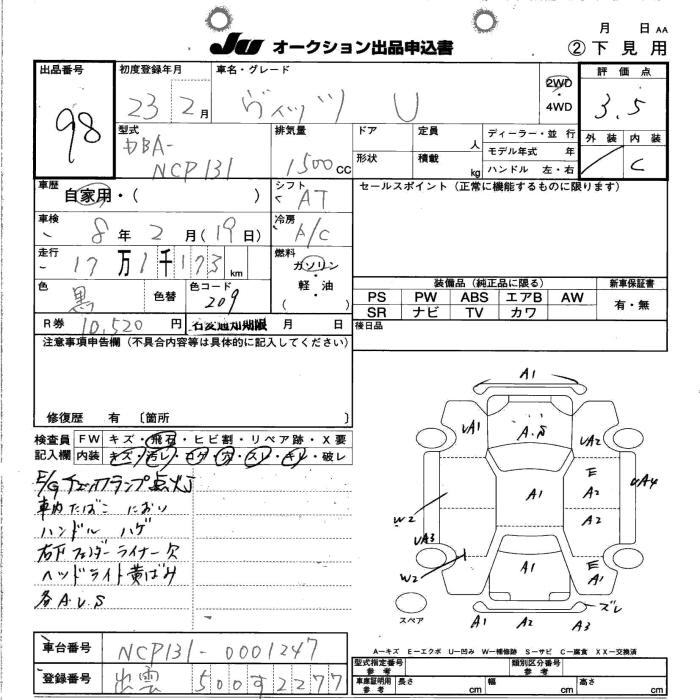 月 日 AA
JU オークション出品申込書
② 下見用
出品番号
98
初度登録年月
23 2月
車名・グレード
ヴィッツ U
2WD
4WD
評価点
3.5
外装 内装
C
型式
DBA-
NCP131
排気量
1500 CC
ドア
定員
人
形状
積載
kg
ディーラー・並行
モデル年式 年
ハンドル 左・右
車歴
自家用・( )
シフト
AT
セールスポイント（正常に機能するものに限ります）
車検
8年2月(19日)
冷房
A/C
走行
17万1千173km
燃料
ガソリン
軽・油
( )
色
黒
色替
色コード
209
装備品（純正品に限る）
新車保証書
PS PW ABS エアB AW
SR ナビ TV カワ
有・無
R券 10,520 円
月 日
後日品
注意事項申告欄（不具合内容等は具体的に記入してください）
修復歴 有 〔箇所 〕
検査員
記入欄
FW キズ・飛石・ヒビ割・リペア跡・X要
内装 キズ・汚レ・コゲ・穴・スレ・キレ・破レ
E/gチェックランプ点灯
車内たばこ におい
ハンドル ハゲ
右下フェンダーライナー欠
ヘッドライト黄ばみ
各A.U.S
A1
UA1
A.S
UA2
E
A2
UA4
A1
A2
W2
UA3
W2
A1
E
A1
ズレ
スペア
A1 U2 A2 A3
A－キズ E－エクボ U－凹み W－補修跡 S－サビ C－腐食 XX－交換済
車台番号
NCP131-0001247
型式指定番号
参考
類別区分番号
参考
登録番号
出雲 500す2277
車庫証明用
参考
長さ cm
幅 cm
高さ cm